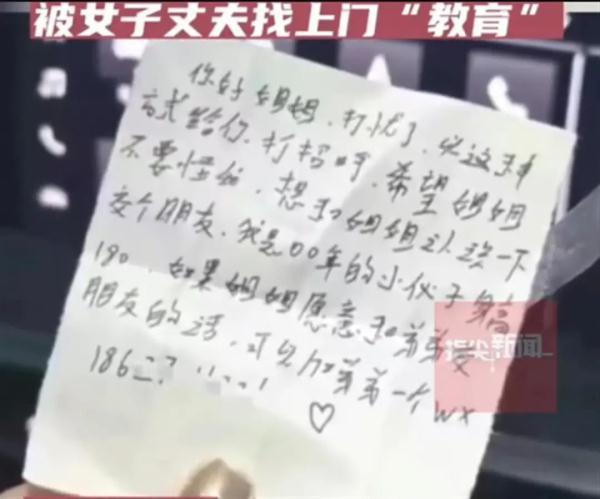 被女子丈夫找上门“教育”
你好姐姐,打扰了,以这种
方式给你打招呼,希望姐姐
不要怪给,想和姐姐认识一下
交个朋友,我是00年的小伙子身高
190,如果姐姐愿意和弟弟交
朋友的话,可以加弟弟一个wx
186
♡
指尖新闻